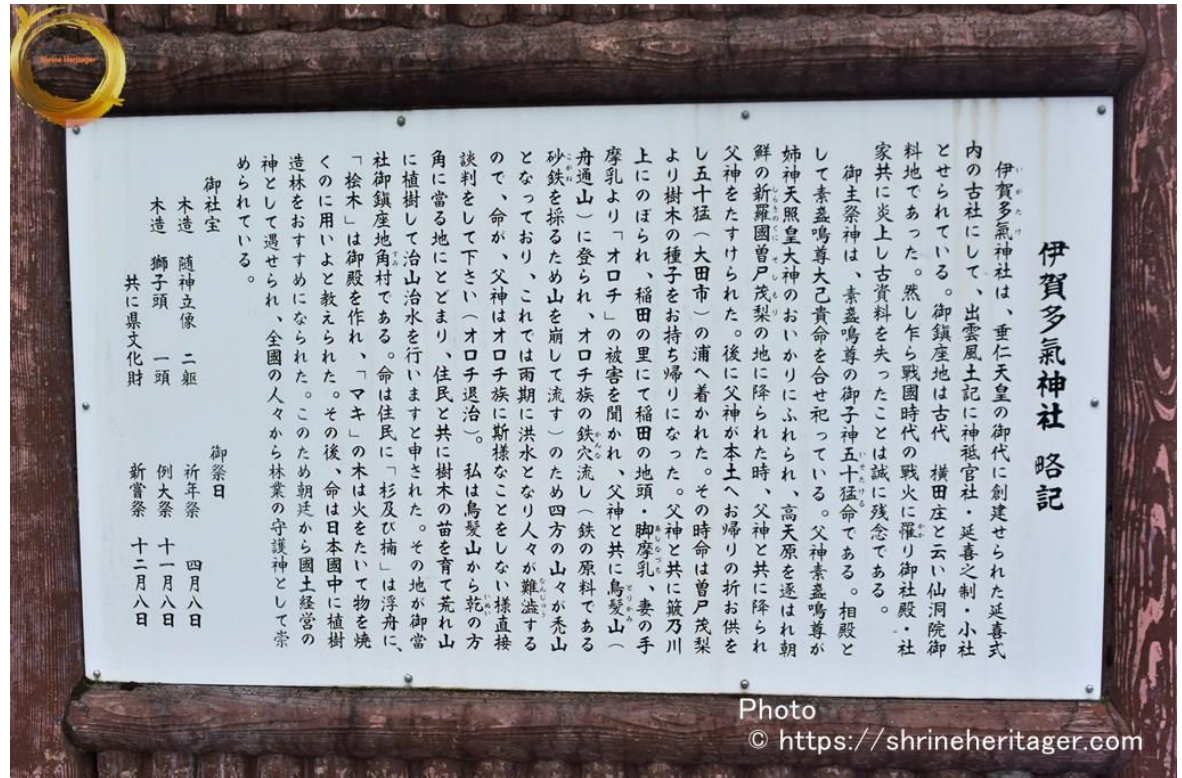 伊賀多氣神社 略記
伊賀多氣神社は、垂仁天皇の御代に創建せられた延喜式
内の古社にして、出雲風土記に神祗官社・延喜之制・小社
とせられている。御鎮座地は古代 横田庄と云い仙洞院御
料地であった。然し乍ら戦國時代の戦火に罹り御社殿・社
家共に炎上し古資料を失ったことは誠に残念である。
御主祭神は、素盞鳴尊の御子神五十猛命である。相殿と
して素盞鳴尊大己貴命を合せ祀っている。父神素盞鳴尊が
姉神天照皇大神のおいかりにふれられ、高天原を逐はれ朝
鮮の新羅國曽尸茂梨の地に降られた時、父神と共に降られ
父神をたすけられた。後に父神が本土へお帰りの折お供を
し五十猛（大田市）の浦へ着かれた。その時命は曽尸茂梨
より樹木の種子をお持ち帰りになった。父神と共に簸乃川
上にのぼられ、稲田の里にて稲田の地頭・脚摩乳、妻の手
摩乳より「オロチ」の被害を聞かれ、父神と共に鳥髪山（
舟通山）に登られ、オロチ族の鉄穴流し（鉄の原料である
砂鉄を採るため山を崩して流す）のため四方の山々が禿山
となっており、これでは雨期に洪水となり人々が難澁する
ので、命が、父神はオロチ族に斯様なことをしない様直接
談判をして下さい（オロチ退治）。私は鳥髪山から乾の方
角に當る地にとどまり、住民と共に樹木の苗を育て荒れ山
に植樹して治山治水を行いますと申された。その地が御當
社御鎮座地角村である。命は住民に「杉及び楠」は浮舟に、
「桧木」は御殿を作れ、「マキ」の木は火をたいて物を焼
くのに用いよと教えられた。その後、命は日本國中に植樹
造林をおすすめになられた。このため朝廷から國土経営の
神として遇せられ、全國の人々から林業の守護神として崇
められている。
御社宝
木造 随神立像 二躯
木造 獅子頭 一頭
共に県文化財
御祭日
祈年祭 四月八日
例大祭 十一月八日
新嘗祭 十二月八日
Shrine Heritager
Photo
© https://shrineheritager.com